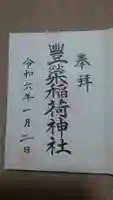 奉拝
豊栄稲荷神社
令和六年一月二日